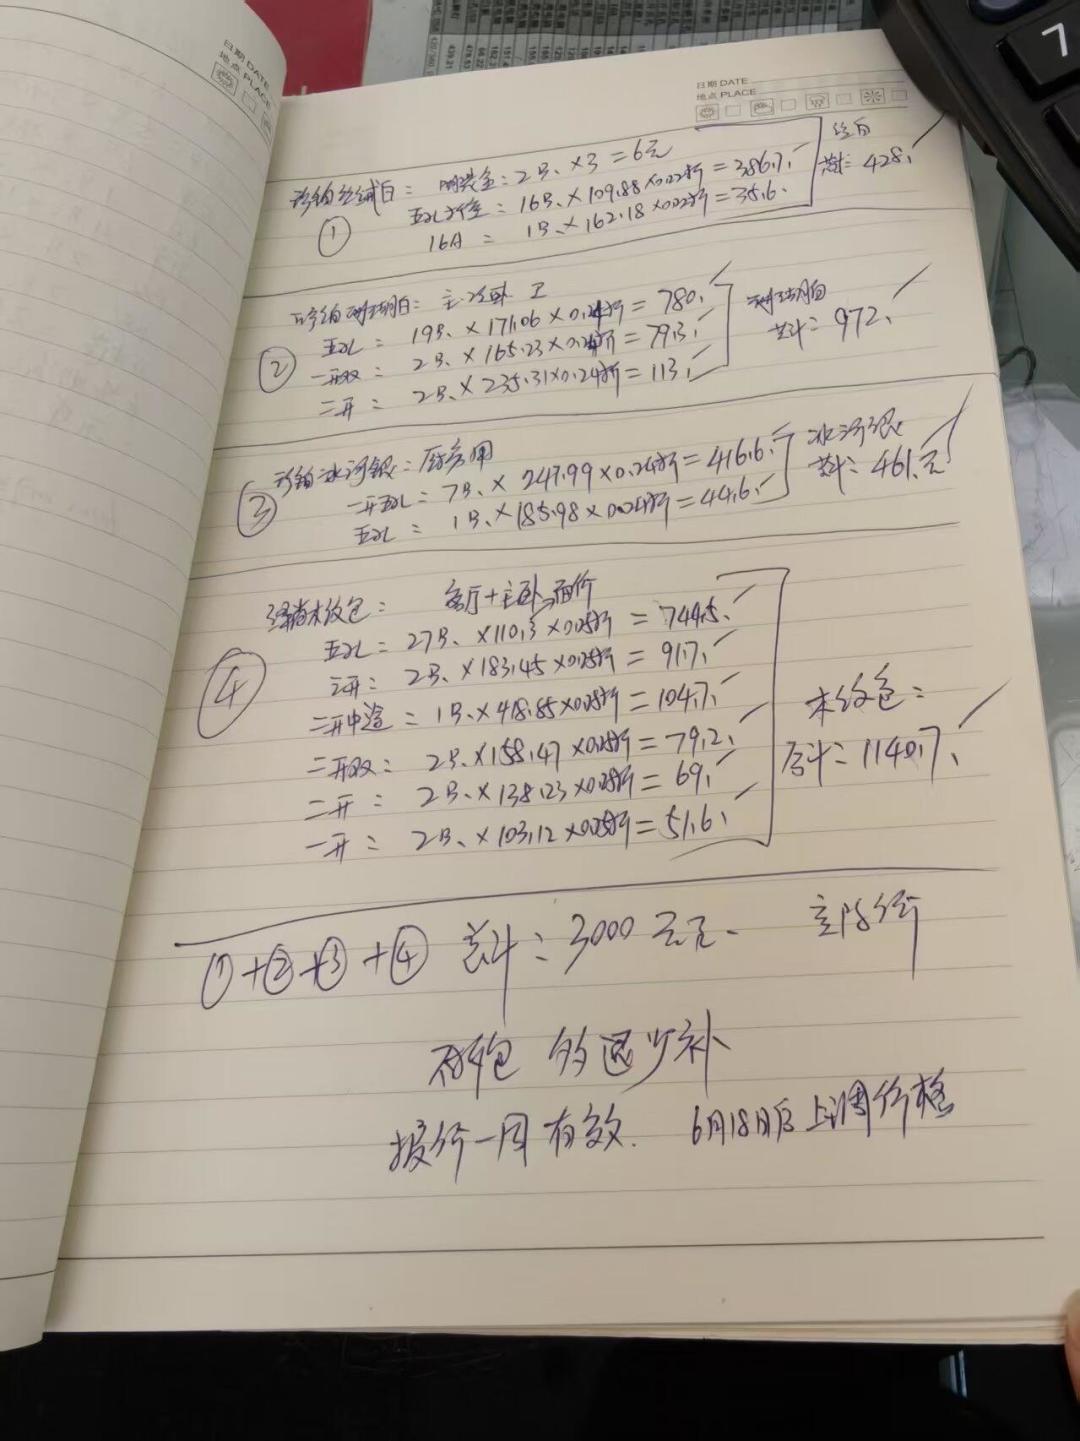 日期 DATE
地点 PLACE
日期 DATE
地点 PLACE
7
珍铂丝绒白： 明装盒：2只、×3＝6元
五孔 ：16只、×109.88×0.22折＝386.7、
16A ＝ 1只、×162.18×0.22折＝35.6、
①
丝白
共计：428、
珍铂珊瑚白： 主、次卧 卫
五孔＝ 19只、×171.06×0.24折＝780、
一开双＝ 2只、×165.23×0.24折＝79.3、
二开＝ 2只、×235.31×0.24折＝113、
②
珊瑚白
共计＝972、
珍铂冰河银：厨房用
一开五孔＝7只、×247.99×0.24折＝416.6、
五孔 ＝ 1只、×185.98×0.24折＝44.6、
③
冰河银
共计＝461、元
木纹色： 客厅+主卧
五孔＝27只、×110.3×0.25折＝744.5、
三开＝ 2只、×183.45×0.25折＝91.7、
二开中途＝1只、×418.85×0.25折＝104.7、
二开双＝ 2只、×158.47×0.25折＝79.2、
二开＝ 2只、×138.23×0.25折＝69、
一开＝ 2只、×103.12×0.25折＝51.6、
④
木纹色：
合计＝1140.7、
①+②+③+④ 总计：3000元
多退少补
报价一周有效. 6月18日后上调价格